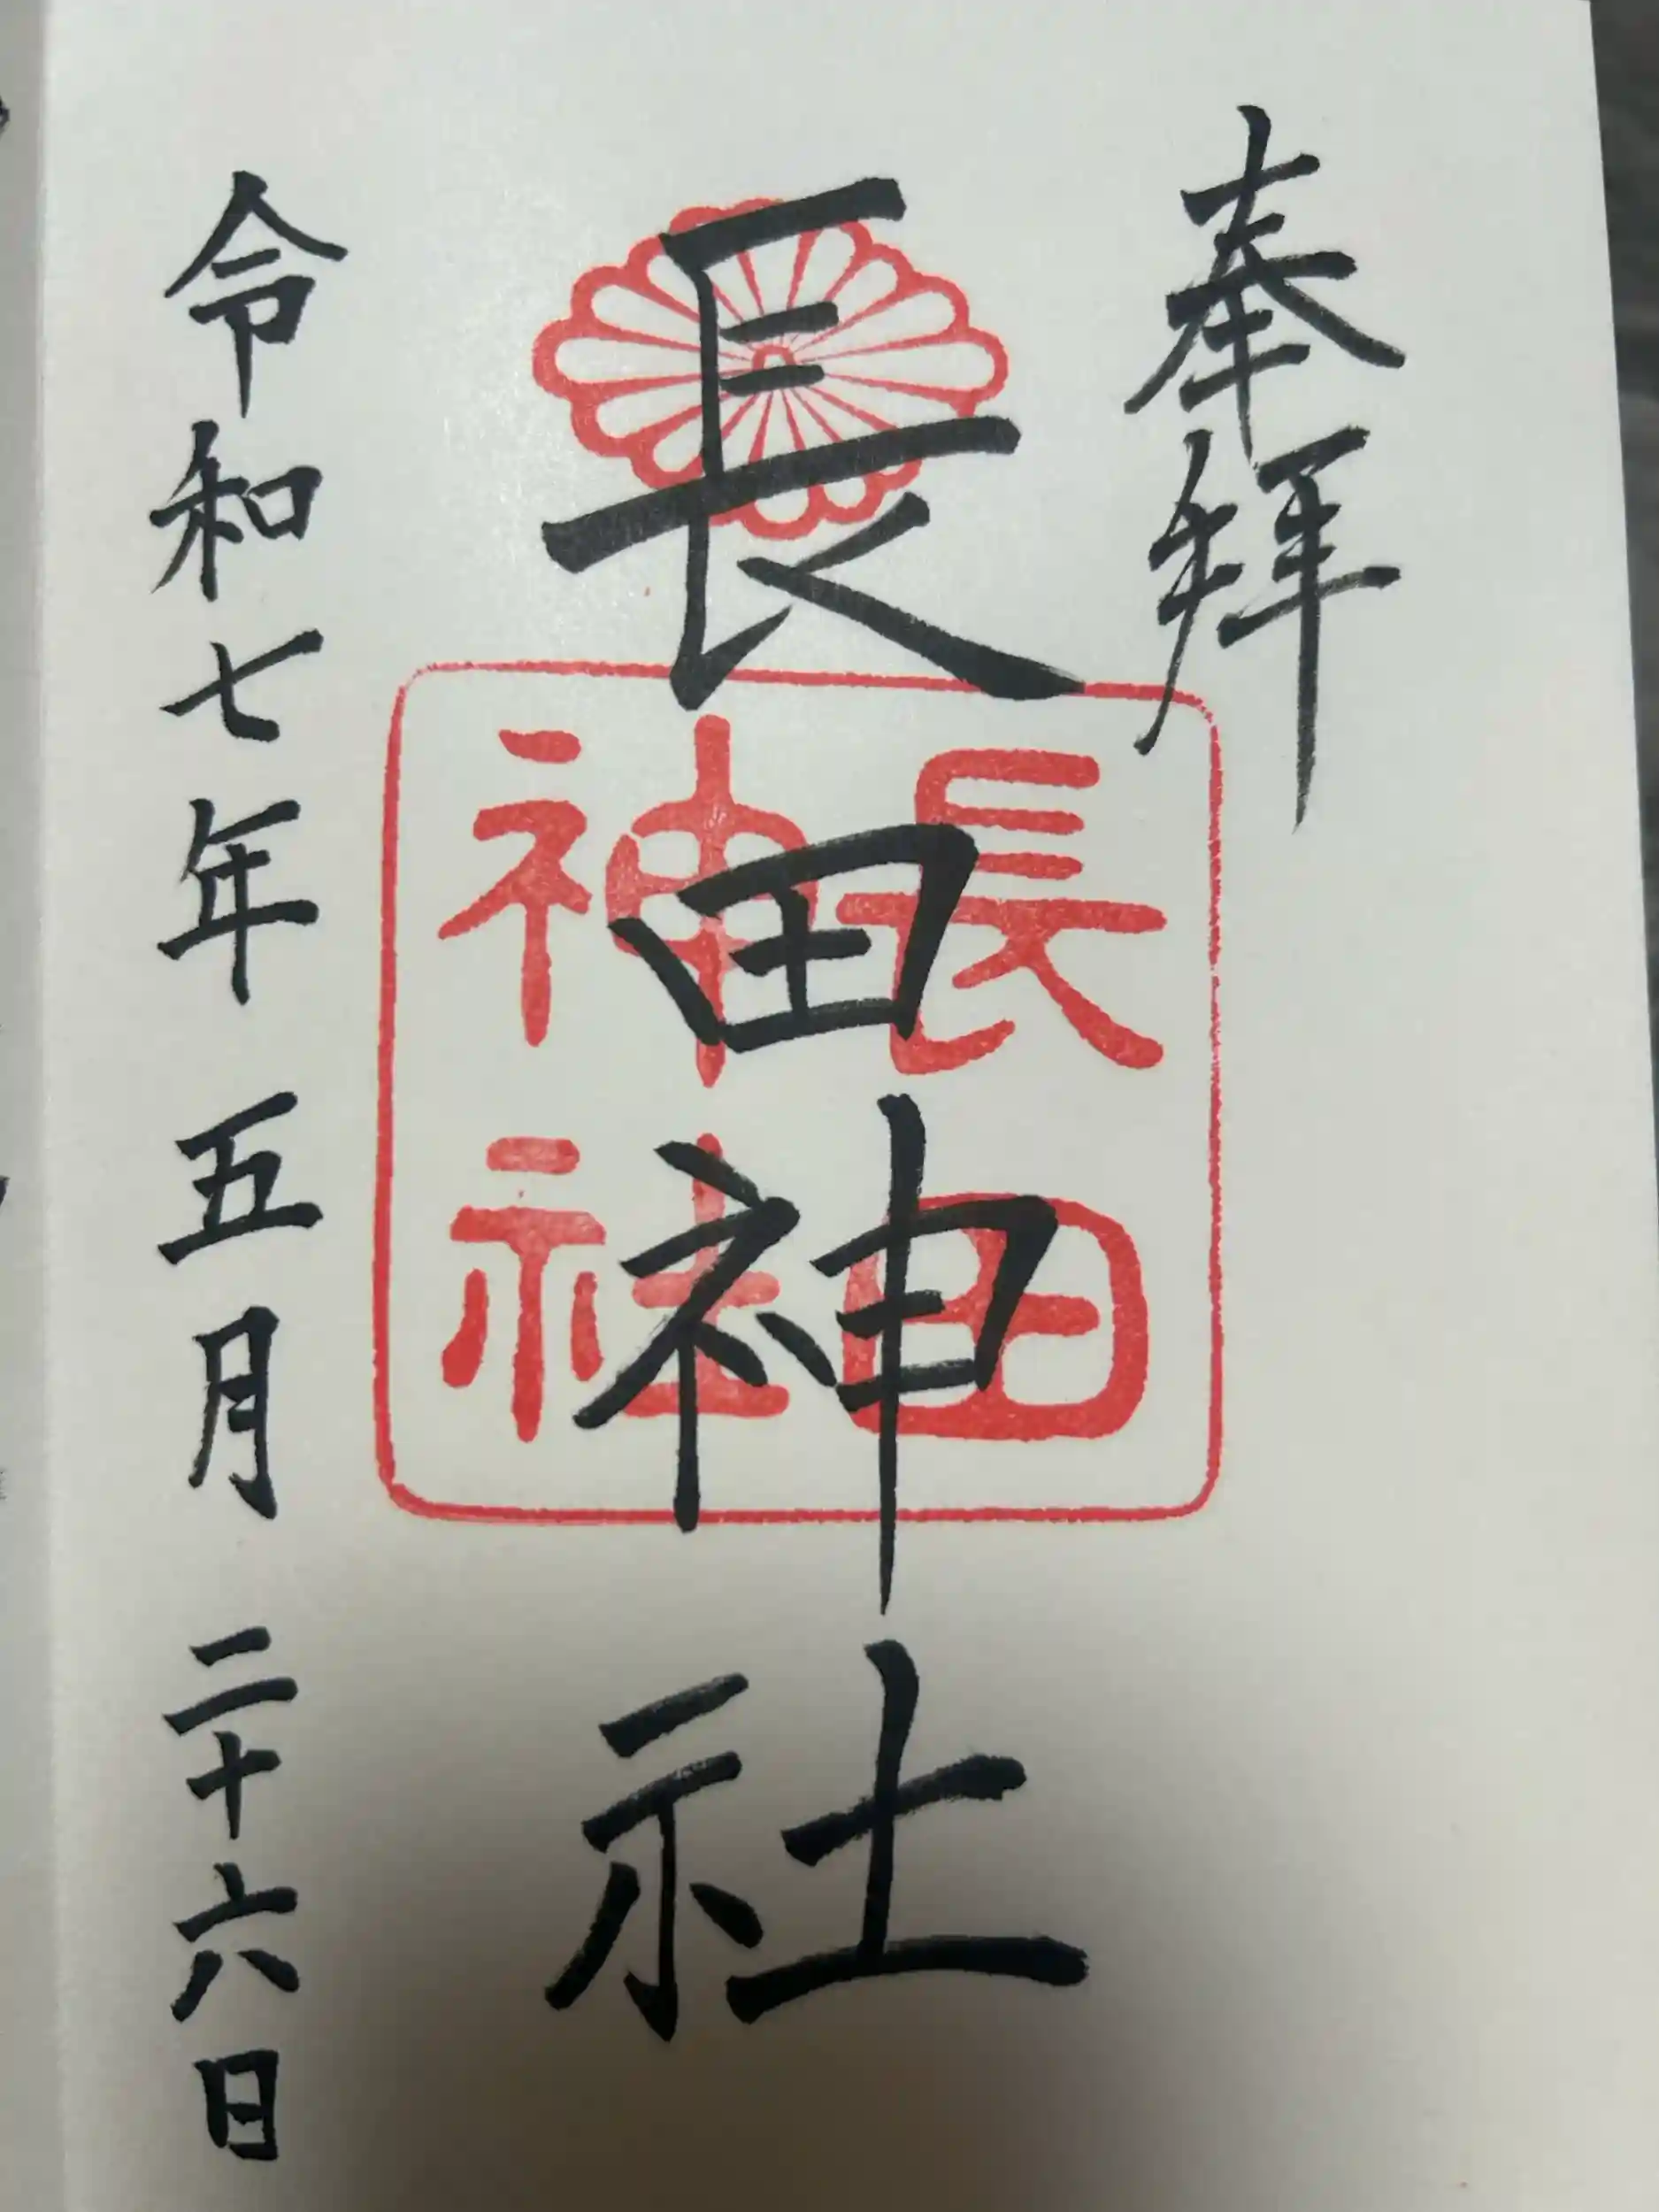 奉拝
長田神社
長田
神社
令和七年五月二十六日